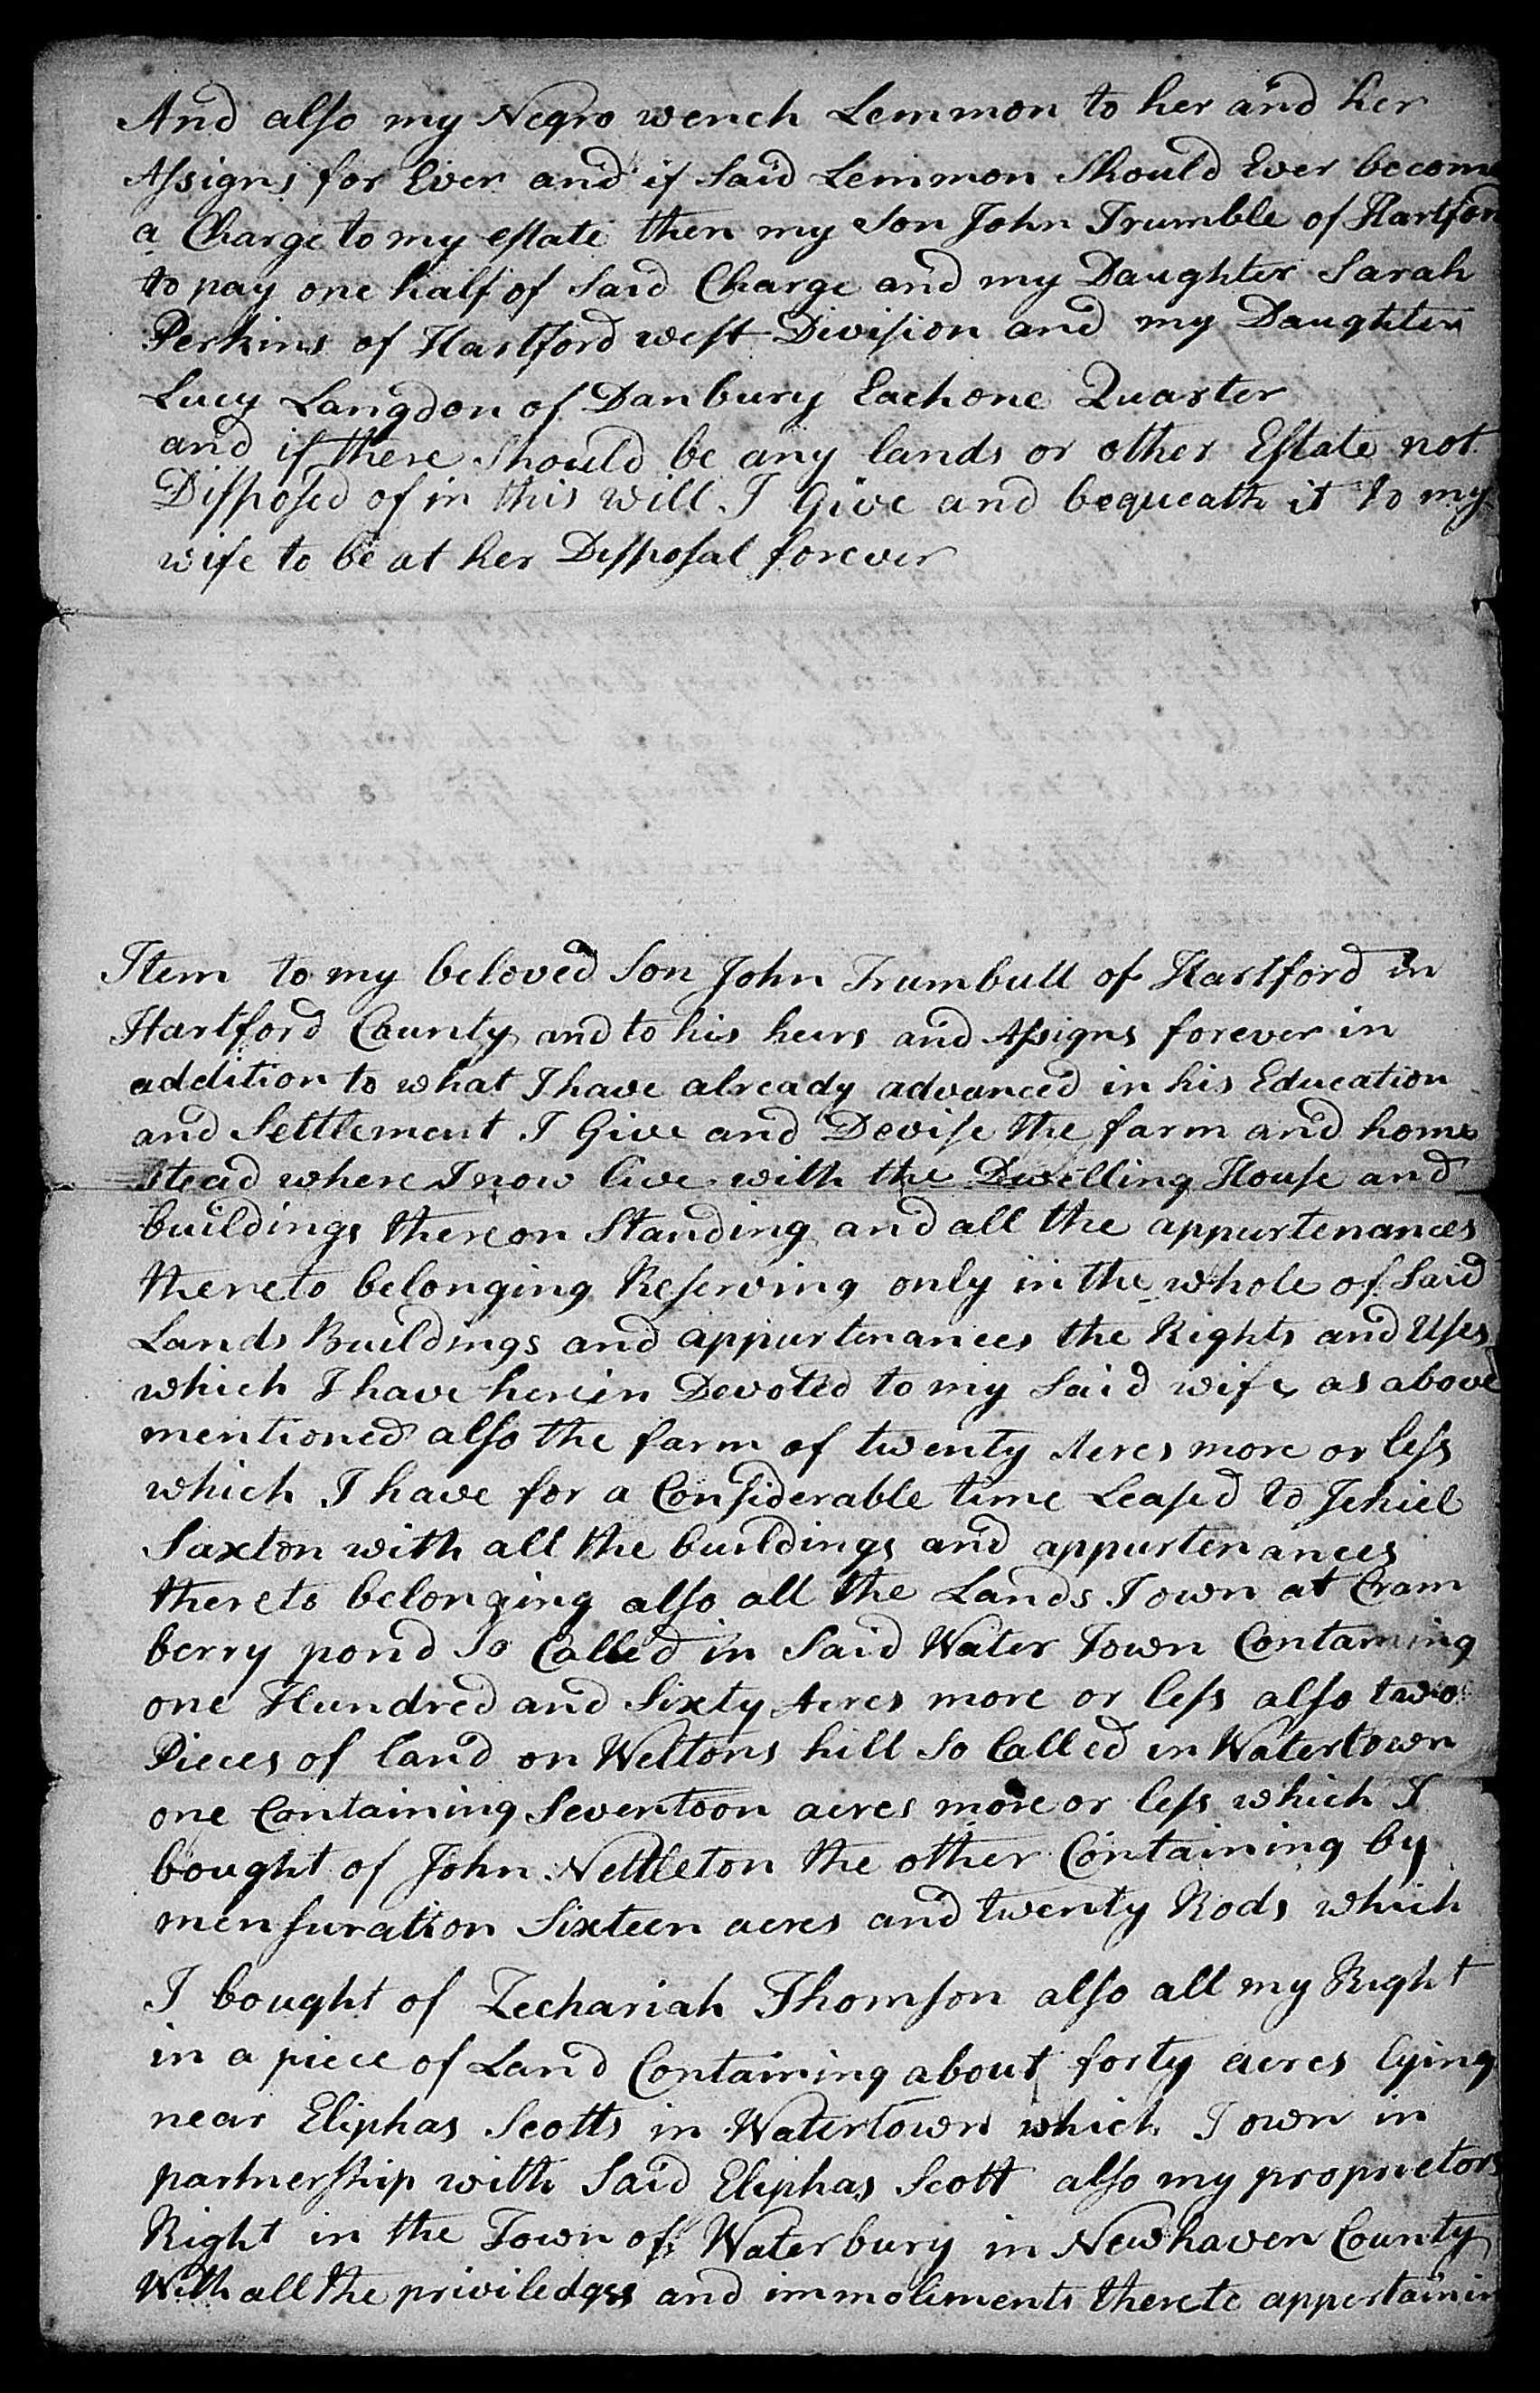 And also my Negro wench Lemmon to her and her
Assigns for Ever and if Said Lemmon Should Ever become
a Charge to my estate then my Son John Trumble of Hartford
to pay one half of Said Charge and my Daughter Sarah
Perkins of Hartford west Division and my Daughter
Lucy Langdon of Danbury Each one Quarter
and if there Should be any lands or other Estate not
Dispposed of in this will I Give and bequeath it to my
wife to be at her Dispposal forever
Item to my beloved Son John Trumbull of Hartford in
Hartford County and to his heirs and Assigns forever in
addition to what I have already advanced in his Education
and Settlement I Give and Devise the farm and home
stead where I now live with the Dwelling House and
buildings thereon Standing and all the appurtenances
thereto belonging Reserving only in the whole of Said
Lands Buildings and appurtenances the Rights and Uses
which I have herein Devoted to my Said wife as above
mentioned also the farm of twenty Acres more or less
which I have for a Considerable time Leased to Jehiel
Saxton with all the buildings and appurtenances
thereto belonging also all the Lands I own at Cram
berry pond So Called in Said Water Town Containing
one Hundred and Sixty Acres more or less also two
Pieces of land on Weltons hill So Called in Watertown
one Containing Seventoon acres more or less which I
bought of John Nettleton the other Containing by
mensuration Sixteen acres and twenty Rods which
I bought of Zechariah Thomson also all my Right
in a piece of Land Containing about forty acres lying
near Eliphas Scotts in Watertown which I own in
partnership with Said Eliphas Scott also my proprietors
Right in the Town of Waterbury in Newhaven County
With all the priviledges and immoliments thereto appertainin